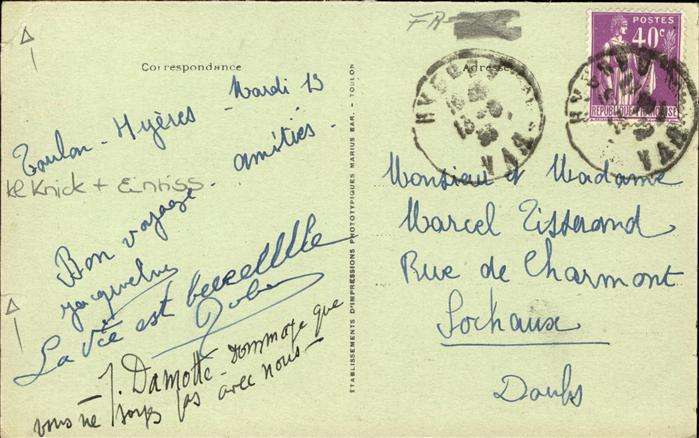 Correspondance
Toulon - Hyères - Mardi 13
amitiés -
Bon voyage
Jacqueline
La vie est
J. Damotte - dommage que
vous ne soyez pas avec nous -
ÉTABLISSEMENTS D'IMPRESSIONS PHOTOTYPIQUES MARIUS BAR. - TOULON
FR-
POSTES
40c
REPUBLIQUE FRANÇAISE
HYERES
VAR
HYERES
VAR
Monsieur et Madame
Marcel Tisserand
Rue de Charmont
Sochaux
Doubs